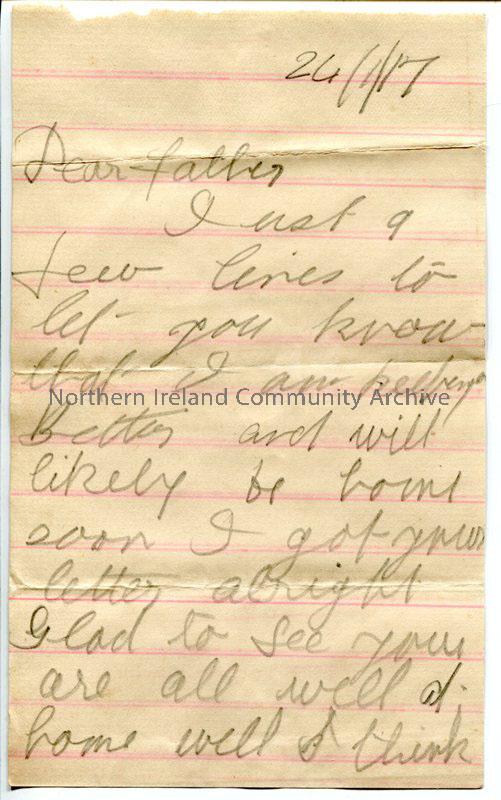 24/1/17
Dear father
Just a
few lines to
let you know
that I am
Northern Ireland Community Archive
Better and will
likely be home
soon I got your
letter alright
Glad to see your
are all well at
home well I think